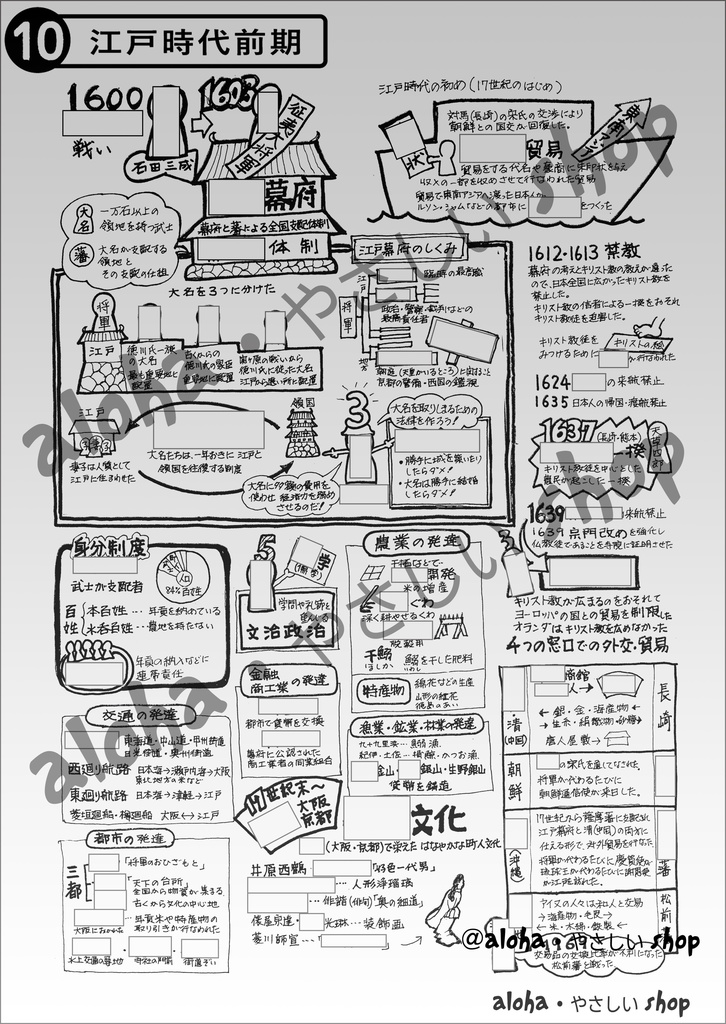 10 江戸時代前期
1600
戦い
石田三成
1603
征夷大将軍
幕府
幕府と藩による全国支配体制
体制
大名
一万石以上の
領地を持つ武士
藩
大名が支配する
領地と
その支配の仕組
江戸時代の初め(17世紀のはじめ)
対馬(長崎)の宗氏の交渉により
朝鮮との国交が回復した。
東南アジア
貿易
貿易をする大名や豪商に朱印状を与え
収入の一部を収めさせて行なわれた貿易
貿易で東南アジアへ渡った日本人が
をつくった
江戸幕府のしくみ
大名を3つに分けた
将軍
江戸
徳川氏一族
の大名
最も重要地に
配置
古くからの
徳川氏の家臣
重要地に配置
関ヶ原の戦いから
徳川氏に従った大名
江戸から遠い所に配置
将軍
江戸
臨時の最高職
政治・警察・裁判などの
最高責任者
地方
朝廷(天皇がいるところ)と交渉など
京都の警備・西国の監視
江戸
妻子
妻子は人質として
江戸に住まわせた
大名たちは、一年おきに江戸と
領国を往復する制度
領国
3
大名に多額の費用を
使わせ経済力を弱め
させるのだ!
大名を取りしまるための
法律を作ろう!
・勝手に城を築いたり
したらダメ!
・大名は勝手に結婚
したらダメ!
1612・1613 禁教
幕府の考えとキリスト教の教えが違った
ので、日本全国に広がったキリスト教を
禁止した。
キリスト教の信者による一揆をおそれ
キリスト教徒を迫害した。
キリスト教徒を
みつけるために
キリストの絵
が行なわれた
1624 の来航禁止
1635 日本人の帰国・渡航禁止
1637(長崎・熊本)
一揆
天草四郎
キリスト教徒を中心とした
農民が起こした一揆
1639 の来航禁止
1639 宗門改めを強化し
仏教徒であることを寺院に証明させた
3
キリスト教が広まるのをおそれて
ヨーロッパの国との貿易を制限した
オランダはキリスト教を広めなかった
4つの窓口での外交・貿易
身分制度
武士が支配者
84%百姓
百姓
本百姓… 年貢を納めている
水呑百姓…農地を持たない
年貢の納入などに
連帯責任
5
学問や礼節を
重んじる
文治政治
農業の発達
干拓などで
開発
米の増産
ぐわ
深く耕やせるくわ
脱穀用
干鰯
ほしか
鰯を干した肥料
特産物
綿花などの生産
山形の紅花
徳島のあい
金融
商工業の発達
都市で貨幣を交換
幕府に公認された
商工業者の同業組合
漁業・鉱業・林業の発達
九十九里浜…鰯漁
紀伊・土佐…捕鯨・かつお漁
金山・ 銀山・生野銀山
貨幣を鋳造
交通の発達
東海道・中山道・甲州街道
日光街道・奥州街道
西廻り航路 日本海→瀬戸内海→大阪
東北地方の米など
東廻り航路 日本海→津軽→江戸
菱垣廻船・樽廻船 大阪↔江戸
都市の発達
三都
「将軍のおひざもと」
「天下の台所」
全国から物資が集まる
古くから文化の中心地
大阪におかれた
…年貢米や特産物の
取り引きが行なわれた
水上交通の基地
寺社の門前
街道ぞい
17世紀末〜
大阪
京都
文化
(大阪・京都)で栄えた はなやかな町人文化
井原西鶴 「好色一代男」
…人形浄瑠璃
…俳諧(俳句)「奥の細道」
俵屋宗達・ 光琳…装飾画
菱川師宣…
清
(中国)
商館
人→
← 銀・金・海産物 →
← 生糸・絹織物・砂糖 →
唐人屋敷→
長崎
朝鮮
の宗氏を通してなされた
将軍が代わるたびに
朝鮮通信使が来日した。
(沖縄)
17世紀から薩摩藩に支配され
江戸幕府と清(中国)の両方に
仕える形で、対外貿易を行なった
将軍が代わるたびに慶賀使が
琉球王が代わるたびに謝恩使
が江戸を訪れた。
藩
松前
アイヌの人々は和人と交易
→ 海産物・毛皮 →
← 米・木綿・鉄製 ←
交易品の交換比率が不利になった
松前藩と戦った
aloha・やさしい shop
aloha・やさしい shop
@aloha・やさしい shop
aloha・やさしい shop